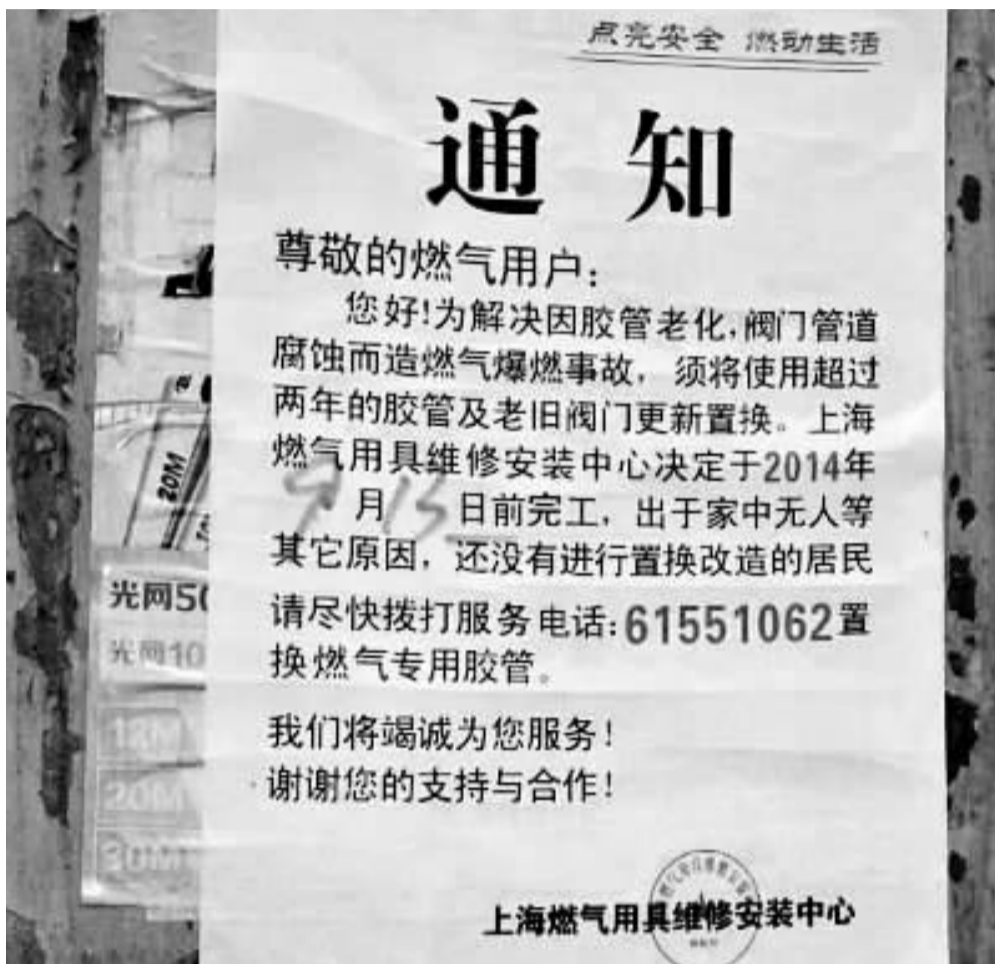 点亮安全 燃动生活
通知
尊敬的燃气用户：
您好!为解决因胶管老化,阀门管道
腐蚀而造燃气爆燃事故，须将使用超过
两年的胶管及老旧阀门更新置换。上海
燃气用具维修安装中心决定于2014年
9月13日前完工，出于家中无人等
其它原因，还没有进行置换改造的居民
请尽快拨打服务电话:61551062置
换燃气专用胶管。
我们将竭诚为您服务!
谢谢您的支持与合作!
上海燃气用具维修安装中心
20M
光网50
光网10
12M
20M
30M